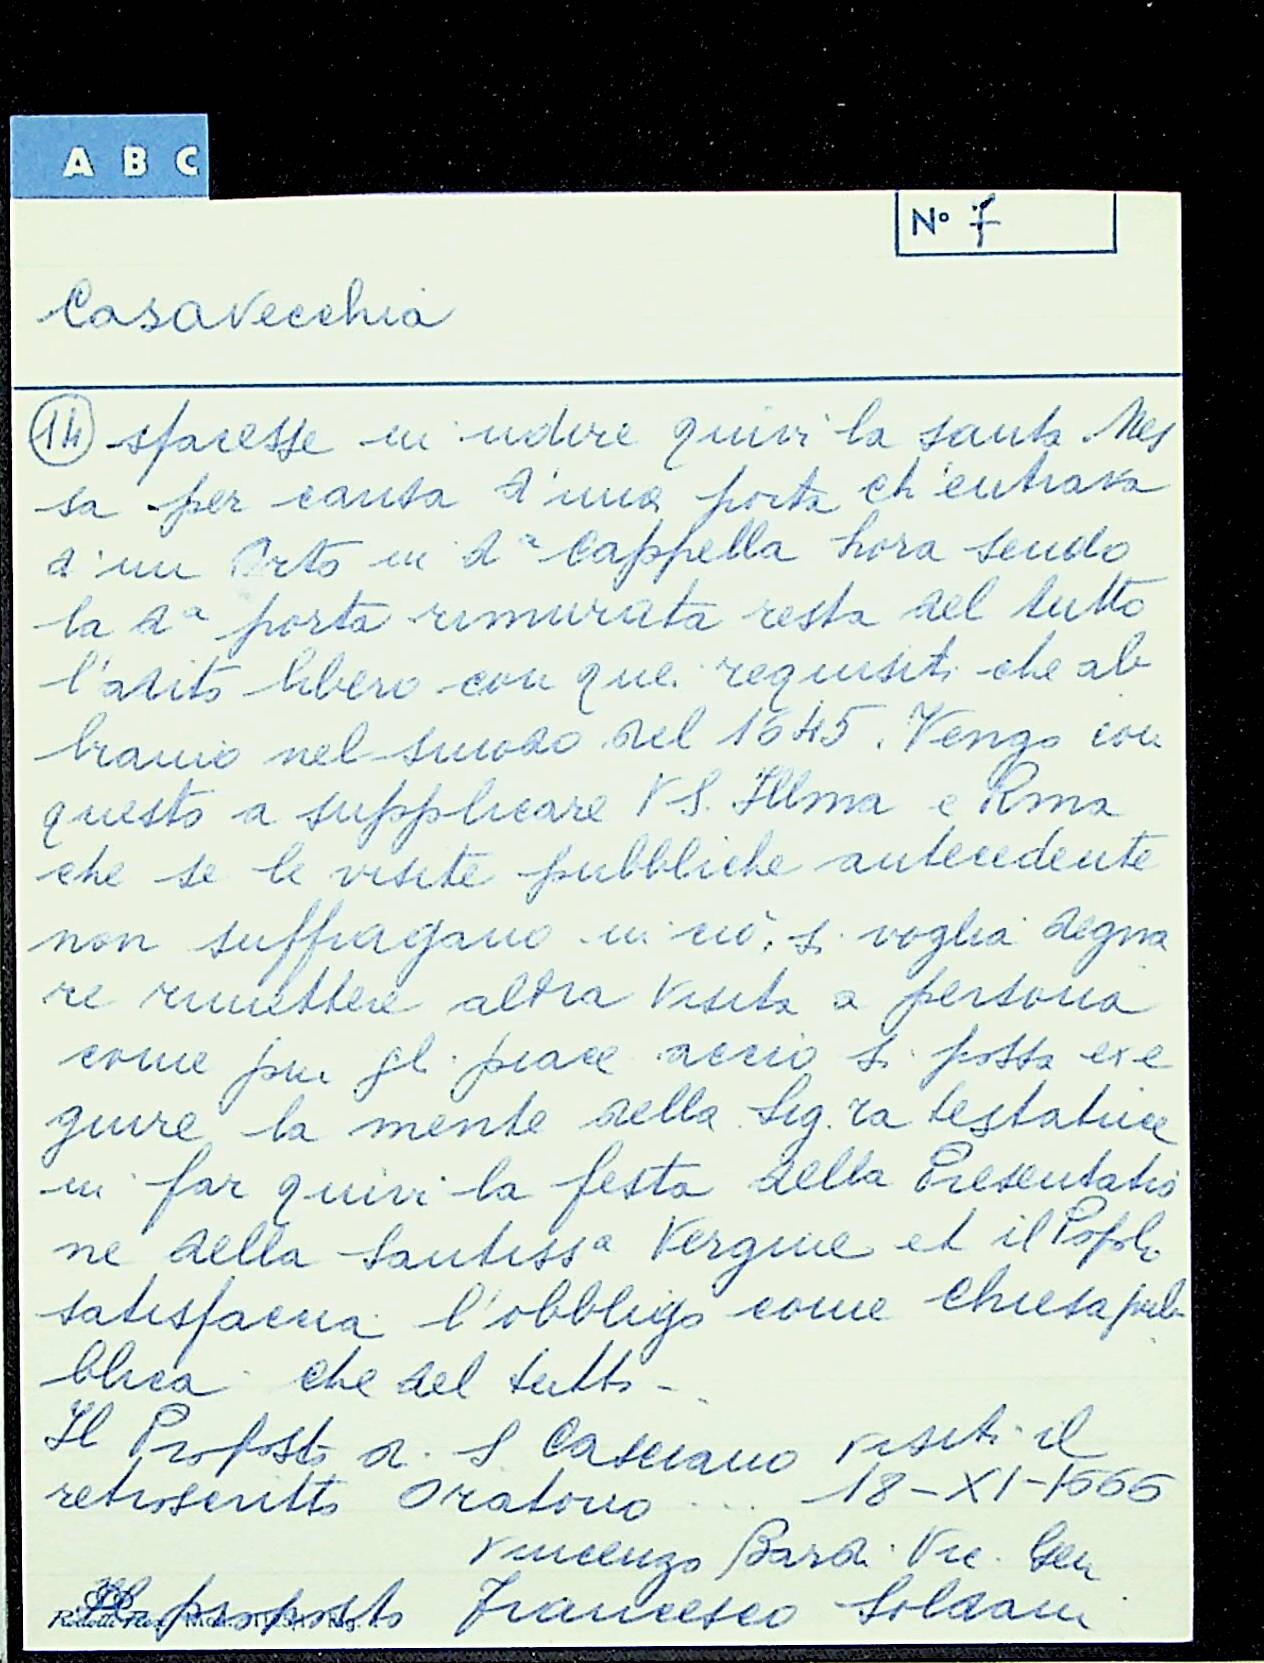 A B C
N° 7
Casavecchia
14 sfacesse in udire quivi la santa Mes
sa per causa d'una porta ch'entrava
d'un Orto in d.ª Cappella hora sendo
la d.ª porta rimurata resta del tutto
l'adito libero con que requisiti che ab
biamo nel sinodo del 1645. Vengo con
questo a supplicare VS. Illma e Rma
che se le visite pubbliche antecedente
non suffragano in ciò, si voglia degna
re rimettere altra visita a persona
come piu gli piace acciò si possa exe
guire la mente della Sig.ra testatrice
in far quivi la festa della Presentatio
ne della Santissª Vergine et il Popolo
satisfaccia l'obbligo come Chiesa pub
blica che del tutto -
Il Proposto di S Casciano visiti il
retroscritto Oratorio ... 18-XI-1666
Vincenzo Bardi Vic. Gen
Il proposto Francesco Soldani